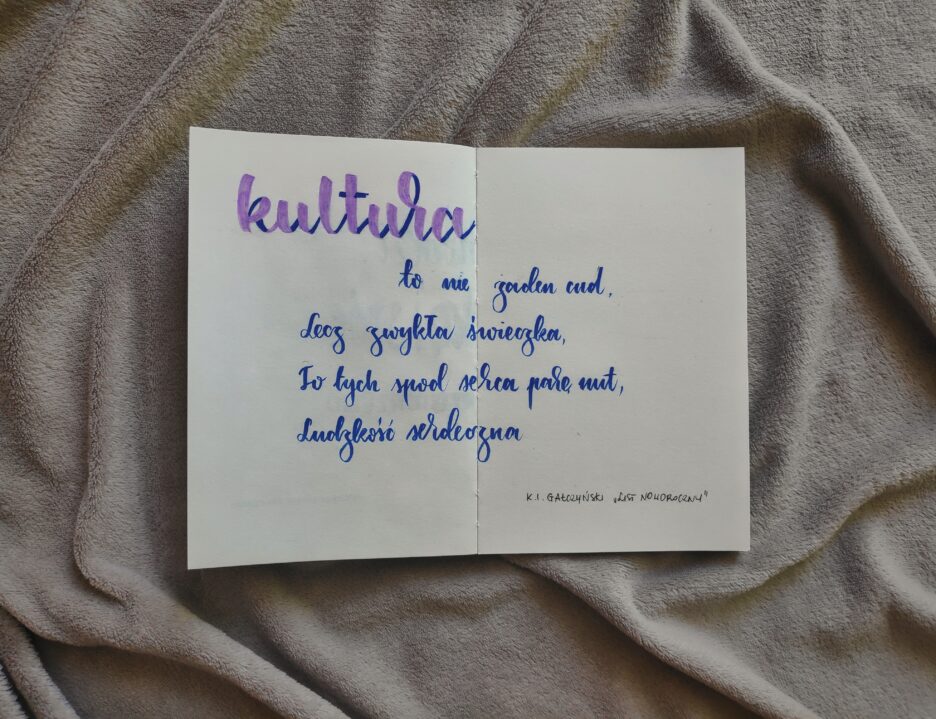 kultura
to nie żaden cud,
Lecz zwykła świeczka,
To tych spod serca parę nut,
Ludzkość serdeczna
K.I. GAŁCZYŃSKI „LIST NOWOROCZNY"